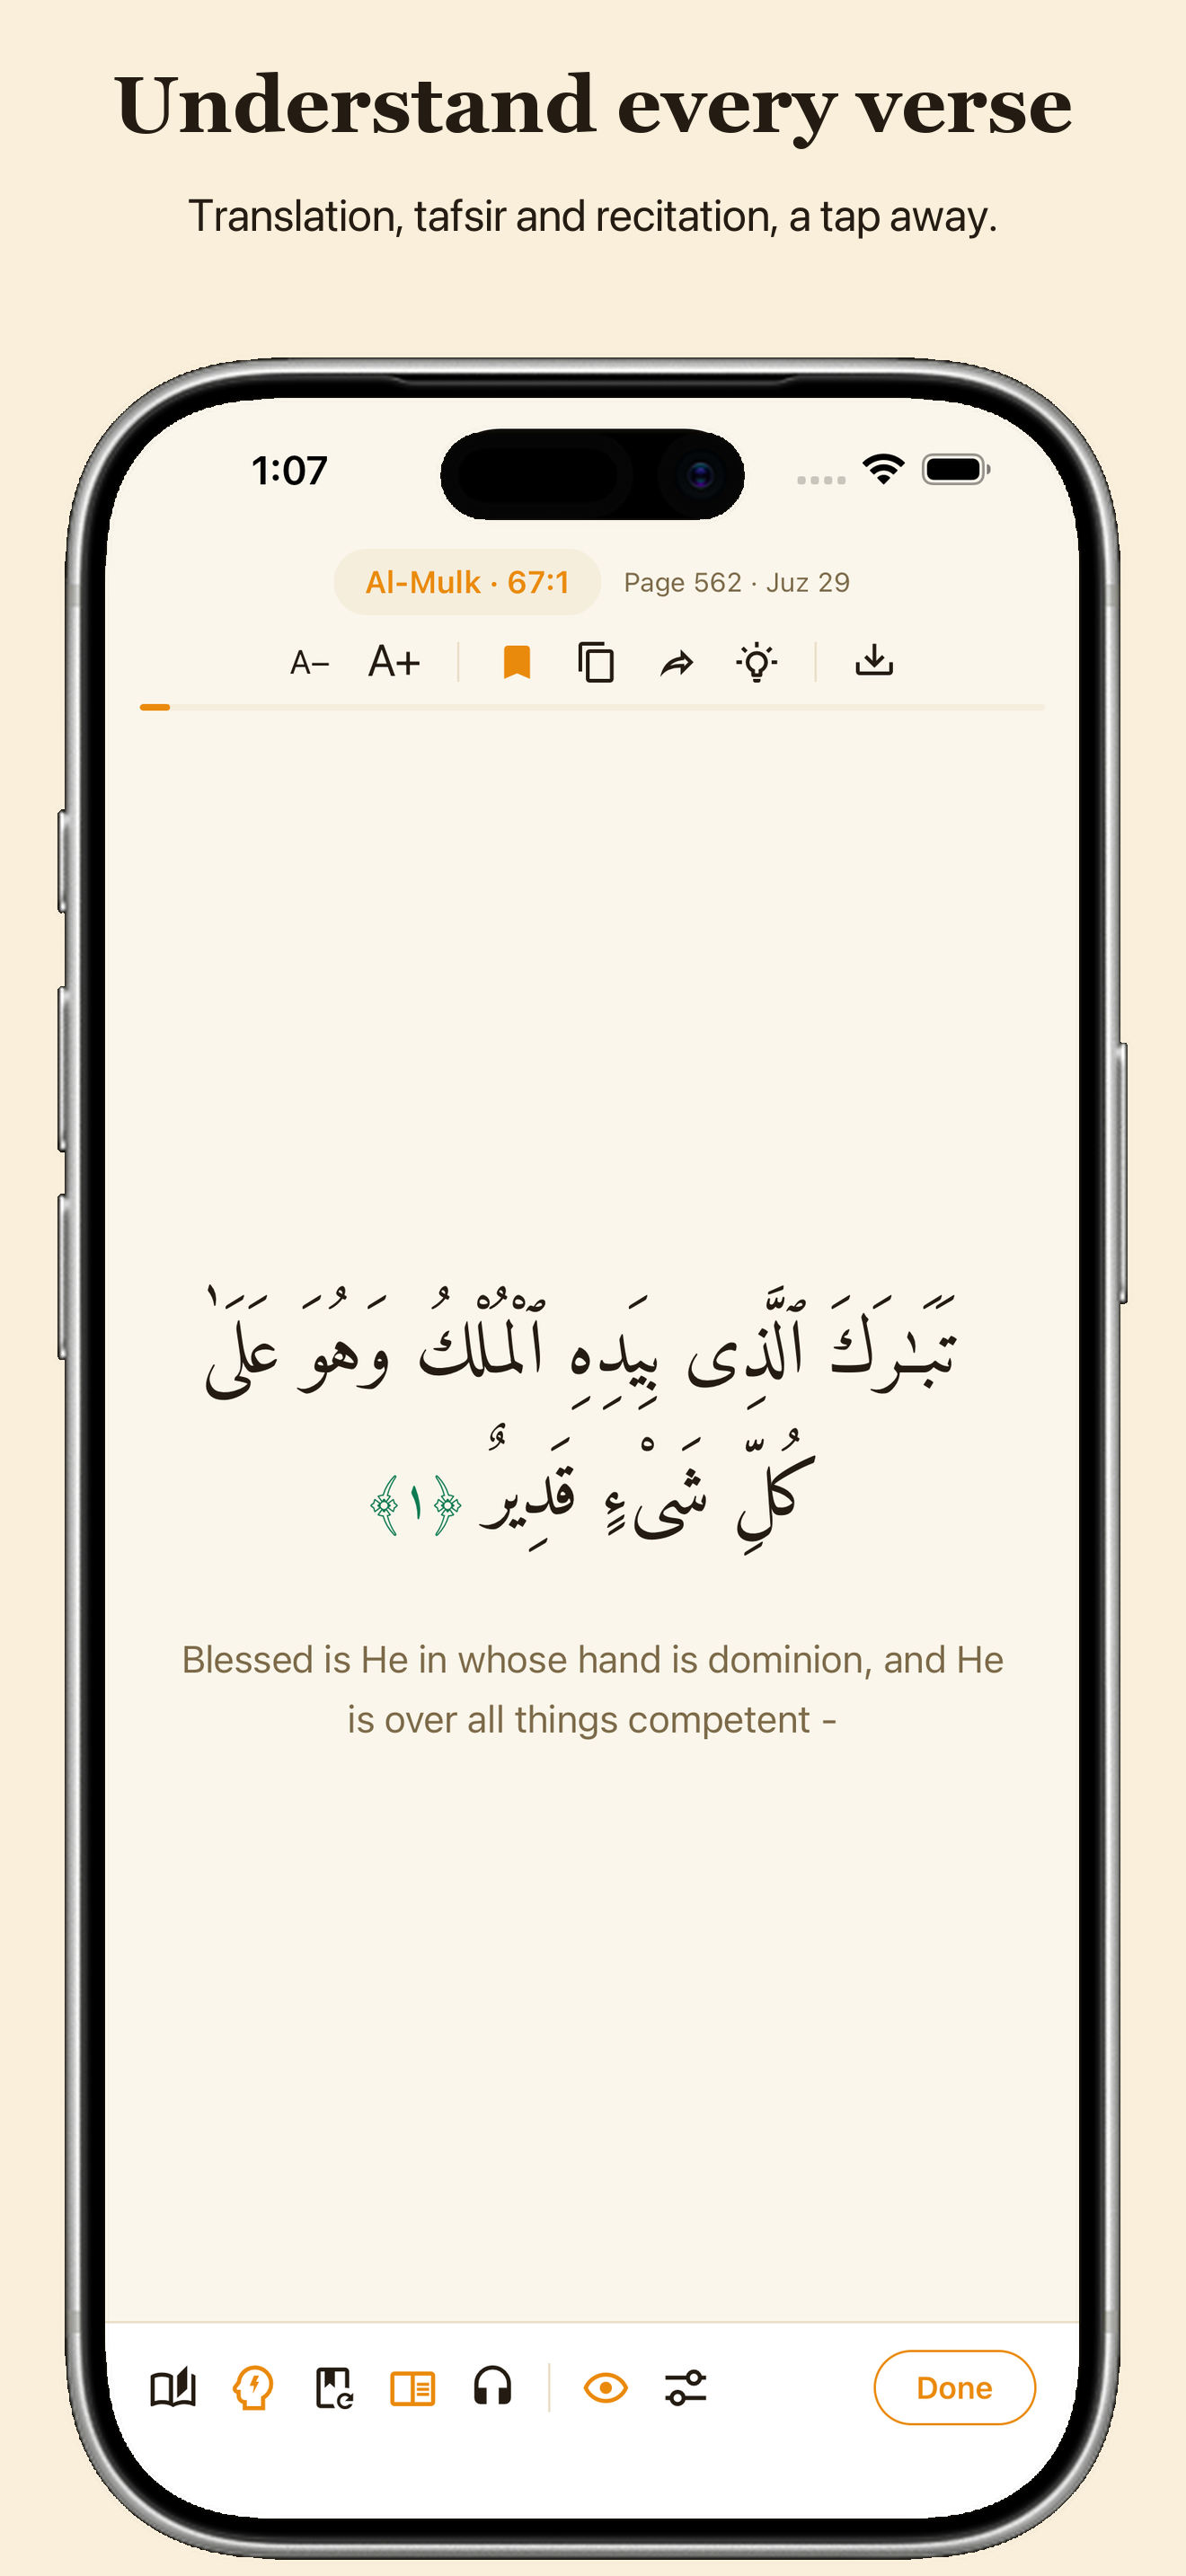 Understand every verse
Translation, tafsir and recitation, a tap away.
1:07
Al-Mulk · 67:1 Page 562 · Juz 29
A− A+
تَبَـٰرَكَ ٱلَّذِى بِيَدِهِ ٱلْمُلْكُ وَهُوَ عَلَىٰ
كُلِّ شَىْءٍ قَدِيرٌ ﴿١﴾
Blessed is He in whose hand is dominion, and He
is over all things competent -
Done